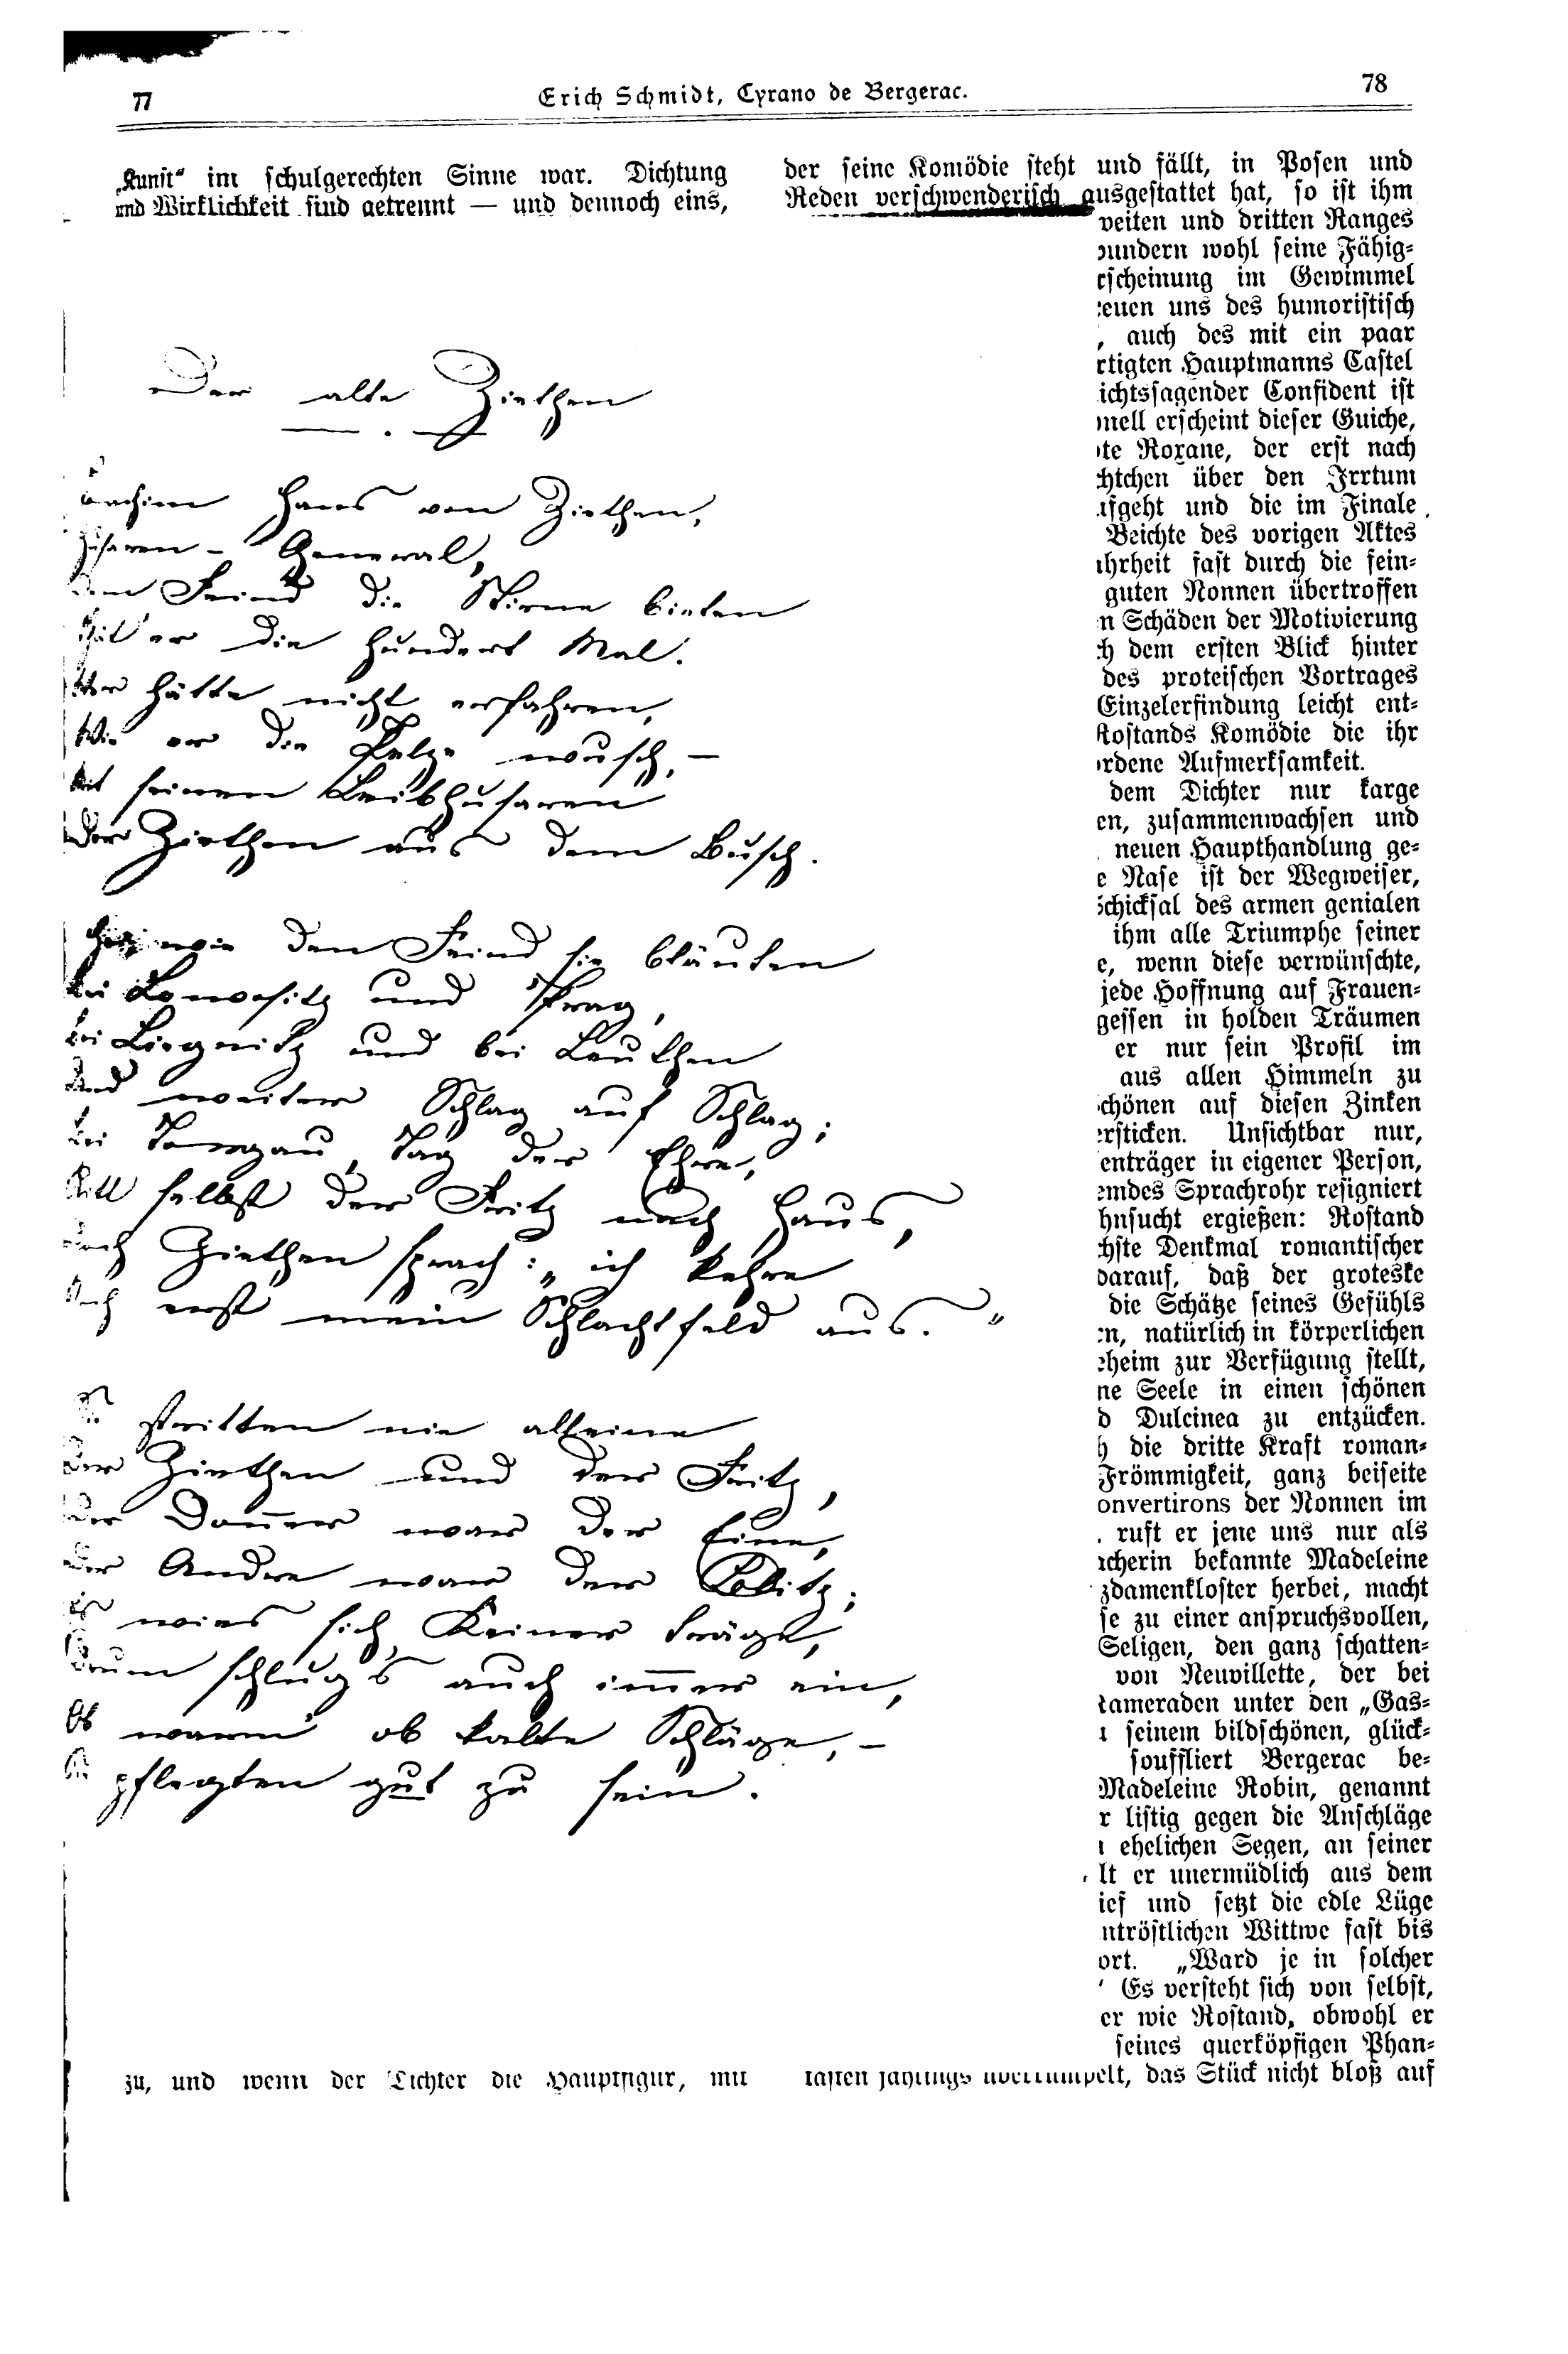 77
Erich Schmidt, Cyrano de Bergerac.
78
„Kunst“ im schulgerechten Sinne war. Dichtung
und Wirklichkeit sind getrennt — und dennoch eins,
Der alte Ziethen
Joachim Hans von Ziethen,
Husaren-General,
Dem Feind die Stirne bieten
Thät er die hundert Mal.
Wer hätte nicht erfahren,
Wie er die Pelze wusch, —
Mit seinen Leibhusaren
Der Ziethen aus dem Busch.
Hei, wie den Feind sie bläuten
Bei Lowositz und Prag,
Bei Liegnitz und bei Leuthen
Und weiter Schlag auf Schlag;
Bei Torgau, Tag der Ehre,
Ritt selbst der Fritz nach Haus,
Doch Ziethen sprach: „ich kehre
Noch erst mein Schlachtfeld aus.“
Sie stritten nie alleine
Der Ziethen und der Fritz,
Der Donner war der Eine,
Der Andre war der Blitz;
Es wies sich Keiner träge,
Drum schlug's auch immer ein,
Ob warm' ob kalte Schläge, —
Sie pflegten gut zu sein.
zu, und wenn der Dichter die Hauptfigur, mit
der seine Komödie steht und fällt, in Posen und
Reden verschwenderisch ausgestattet hat, so ist ihm
weiten und dritten Ranges
wundern wohl seine Fähig-
rscheinung im Gewimmel
reuen uns des humoristisch
, auch des mit ein paar
rtigten Hauptmanns Castel
ichtssagender Confident ist
nell erscheint dieser Guiche,
te Roxane, der erst nach
chtchen über den Irrtum
ufgeht und die im Finale
Beichte des vorigen Aktes
ahrheit fast durch die fein-
guten Nonnen übertroffen
n Schäden der Motivierung
ch dem ersten Blick hinter
des proteischen Vortrages
Einzelerfindung leicht ent-
Rostands Komödie die ihr
ordene Aufmerksamkeit.
dem Dichter nur karge
en, zusammenwachsen und
neuen Haupthandlung ge-
e Nase ist der Wegweiser,
Schicksal des armen genialen
ihm alle Triumphe seiner
e, wenn diese verwünschte,
jede Hoffnung auf Frauen-
gessen in holden Träumen
er nur sein Profil im
aus allen Himmeln zu
chönen auf diesen Zinken
ersticken. Unsichtbar nur,
enträger in eigener Person,
emdes Sprachrohr resigniert
hnsucht ergießen: Rostand
chste Denkmal romantischer
darauf, daß der groteske
die Schätze seines Gefühls
en, natürlich in körperlichen
eheim zur Verfügung stellt,
ne Seele in einen schönen
d Dulcinea zu entzücken.
h die dritte Kraft roman-
Frömmigkeit, ganz beiseite
onvertirons der Nonnen im
. ruft er jene uns nur als
acherin bekannte Madeleine
zdamenkloster herbei, macht
se zu einer anspruchsvollen,
Seligen, den ganz schatten-
von Neuvillette, der bei
kameraden unter den „Gas-
t seinem bildschönen, glück-
souffliert Bergerac be-
Madeleine Robin, genannt
r listig gegen die Anschläge
n ehelichen Segen, an seiner
lt er unermüdlich aus dem
ief und setzt die edle Lüge
ntröstlichen Wittwe fast bis
ort. „Ward je in solcher
“ Es versteht sich von selbst,
er wie Rostand, obwohl er
seines querköpfigen Phan-
tasten jählings überrumpelt, das Stück nicht bloß auf